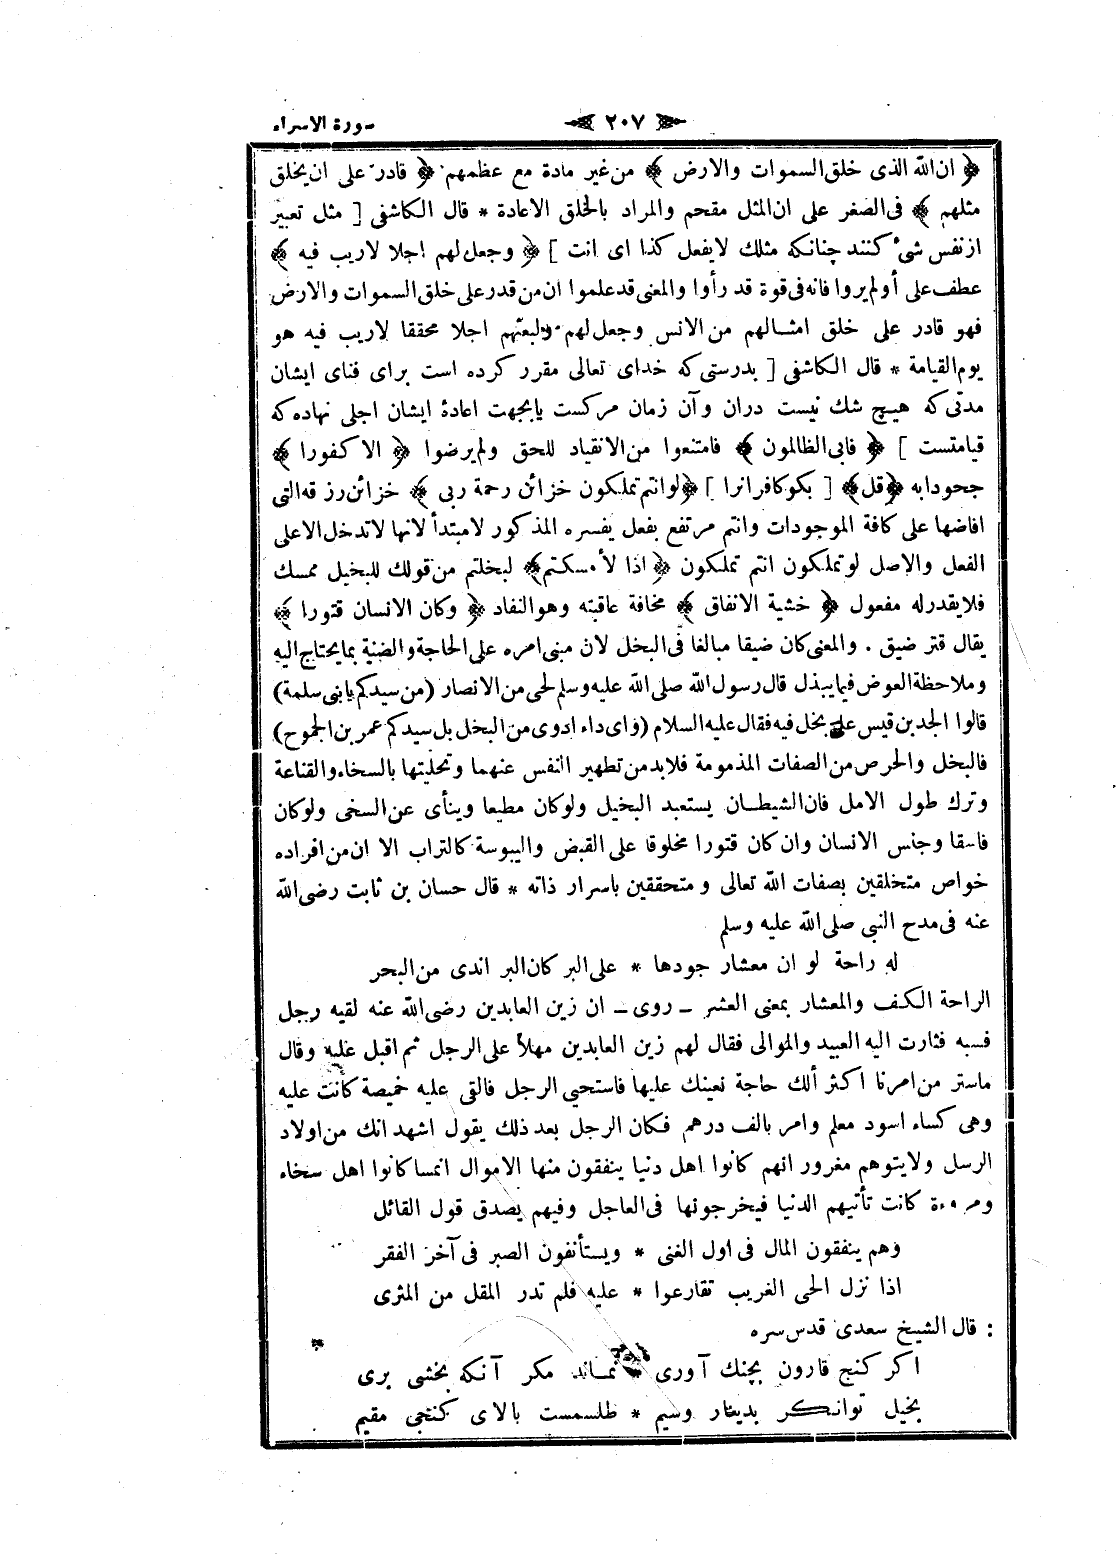 سورة الاسراء
﴿ ٢٠٧ ﴾
﴿ ان الله الذى خلق السموات والارض ﴾ من غير مادة مع عظمهم ﴿ قادر على ان يخلق
مثلهم ﴾ فى الصغر على ان المثل مقحم والمراد بالخلق الاعادة * قال الكاشفى [ مثل تعبير
از نفس شئ كنند چنانكه مثلك لا يفعل كذا اى انت ] ﴿ وجعل لهم اجلا لاريب فيه ﴾
عطف على أو لم يروا فانه فى قوة قد رأوا والمعنى قد علموا ان من قدر على خلق السموات والارض
فهو قادر على خلق امثالهم من الانس وجعل لهم ولبعثهم اجلا محققا لاريب فيه هو
يوم القيامة * قال الكاشفى [ بدرستى كه خداى تعالى مقرر كرده است براى فناى ايشان
مدتى كه هيچ شك نيست دران وآن زمان مركست يابجهت اعادۀ ايشان اجلى نهاده كه
قيامتست ] ﴿ فابى الظالمون ﴾ فامتنعوا من الانقياد للحق ولم يرضوا ﴿ الا كفورا ﴾
جحودا به ﴿ قل ﴾ [ بكو كافرانرا ] ﴿ لو انتم تملكون خزائن رحمة ربى ﴾ خزائن رزقه التى
افاضها على كافة الموجودات وانتم مرتفع بفعل يفسره المذكور لا مبتدأ لانها لا تدخل الا على
الفعل والاصل لو تملكون انتم تملكون ﴿ اذا لأمسكتم ﴾ لبخلتم من قولك للبخيل ممسك
فلا يقدر له مفعول ﴿ خشية الانفاق ﴾ مخافة عاقبته وهو النفاد ﴿ وكان الانسان قتورا ﴾
يقال قتر ضيق . والمعنى كان ضيقا مبالغا فى البخل لان مبنى امره على الحاجة والضنية بما يحتاج اليه
وملاحظة العوض فيما يبذل قال رسول الله صلى الله عليه وسلم لحى من الانصار (من سيدكم يا بنى سلمة)
قالوا الجد بن قيس على بخل فيه فقال عليه السلام (واى داء ادوى من البخل بل سيدكم عمر بن الجموح)
فالبخل والحرص من الصفات المذمومة فلا بد من تطهير النفس عنهما وتحليتها بالسخاء والقناعة
وترك طول الامل فان الشيطان يستعبد البخيل ولو كان مطيعا وينأى عن السخى ولو كان
فاسقا وجنس الانسان وان كان قتورا مخلوقا على القبض واليبوسة كالتراب الا ان من افراده
خواص متخلقين بصفات الله تعالى ومتحققين باسرار ذاته * قال حسان بن ثابت رضى الله
عنه فى مدح النبى صلى الله عليه وسلم
له راحة لو ان معشار جودها * على البر كان البر اندى من البحر
الراحة الكف والمعشار بمعنى العشر ـ روى ـ ان زين العابدين رضى الله عنه لقيه رجل
فسبه فثارت اليه العبيد والموالى فقال لهم زين العابدين مهلا على الرجل ثم اقبل عليه وقال
ماستر من امرنا اكثر ألك حاجة نعينك عليها فاستحيى الرجل فالقى عليه خميصة كانت عليه
وهى كساء اسود معلم وامر بالف درهم فكان الرجل بعد ذلك يقول اشهد انك من اولاد
الرسل ولا يتوهم مغرور انهم كانوا اهل دنيا ينفقون منها الاموال انما كانوا اهل سخاء
ومروءة كانت تأتيهم الدنيا فيخرجونها فى العاجل وفيهم يصدق قول القائل
وهم ينفقون المال فى اول الغنى * ويستأنفون الصبر فى آخر الفقر
اذا نزل الحى الغريب تقارعوا * عليه فلم تدر المقل من المثرى
: قال الشيخ سعدى قدس سره
اكر كنج قارون بچنك آورى * نماند مكر آنكه بخشى برى
بخيل توانكر بدينار وسيم * طلسمست بالاى كنجى مقيم